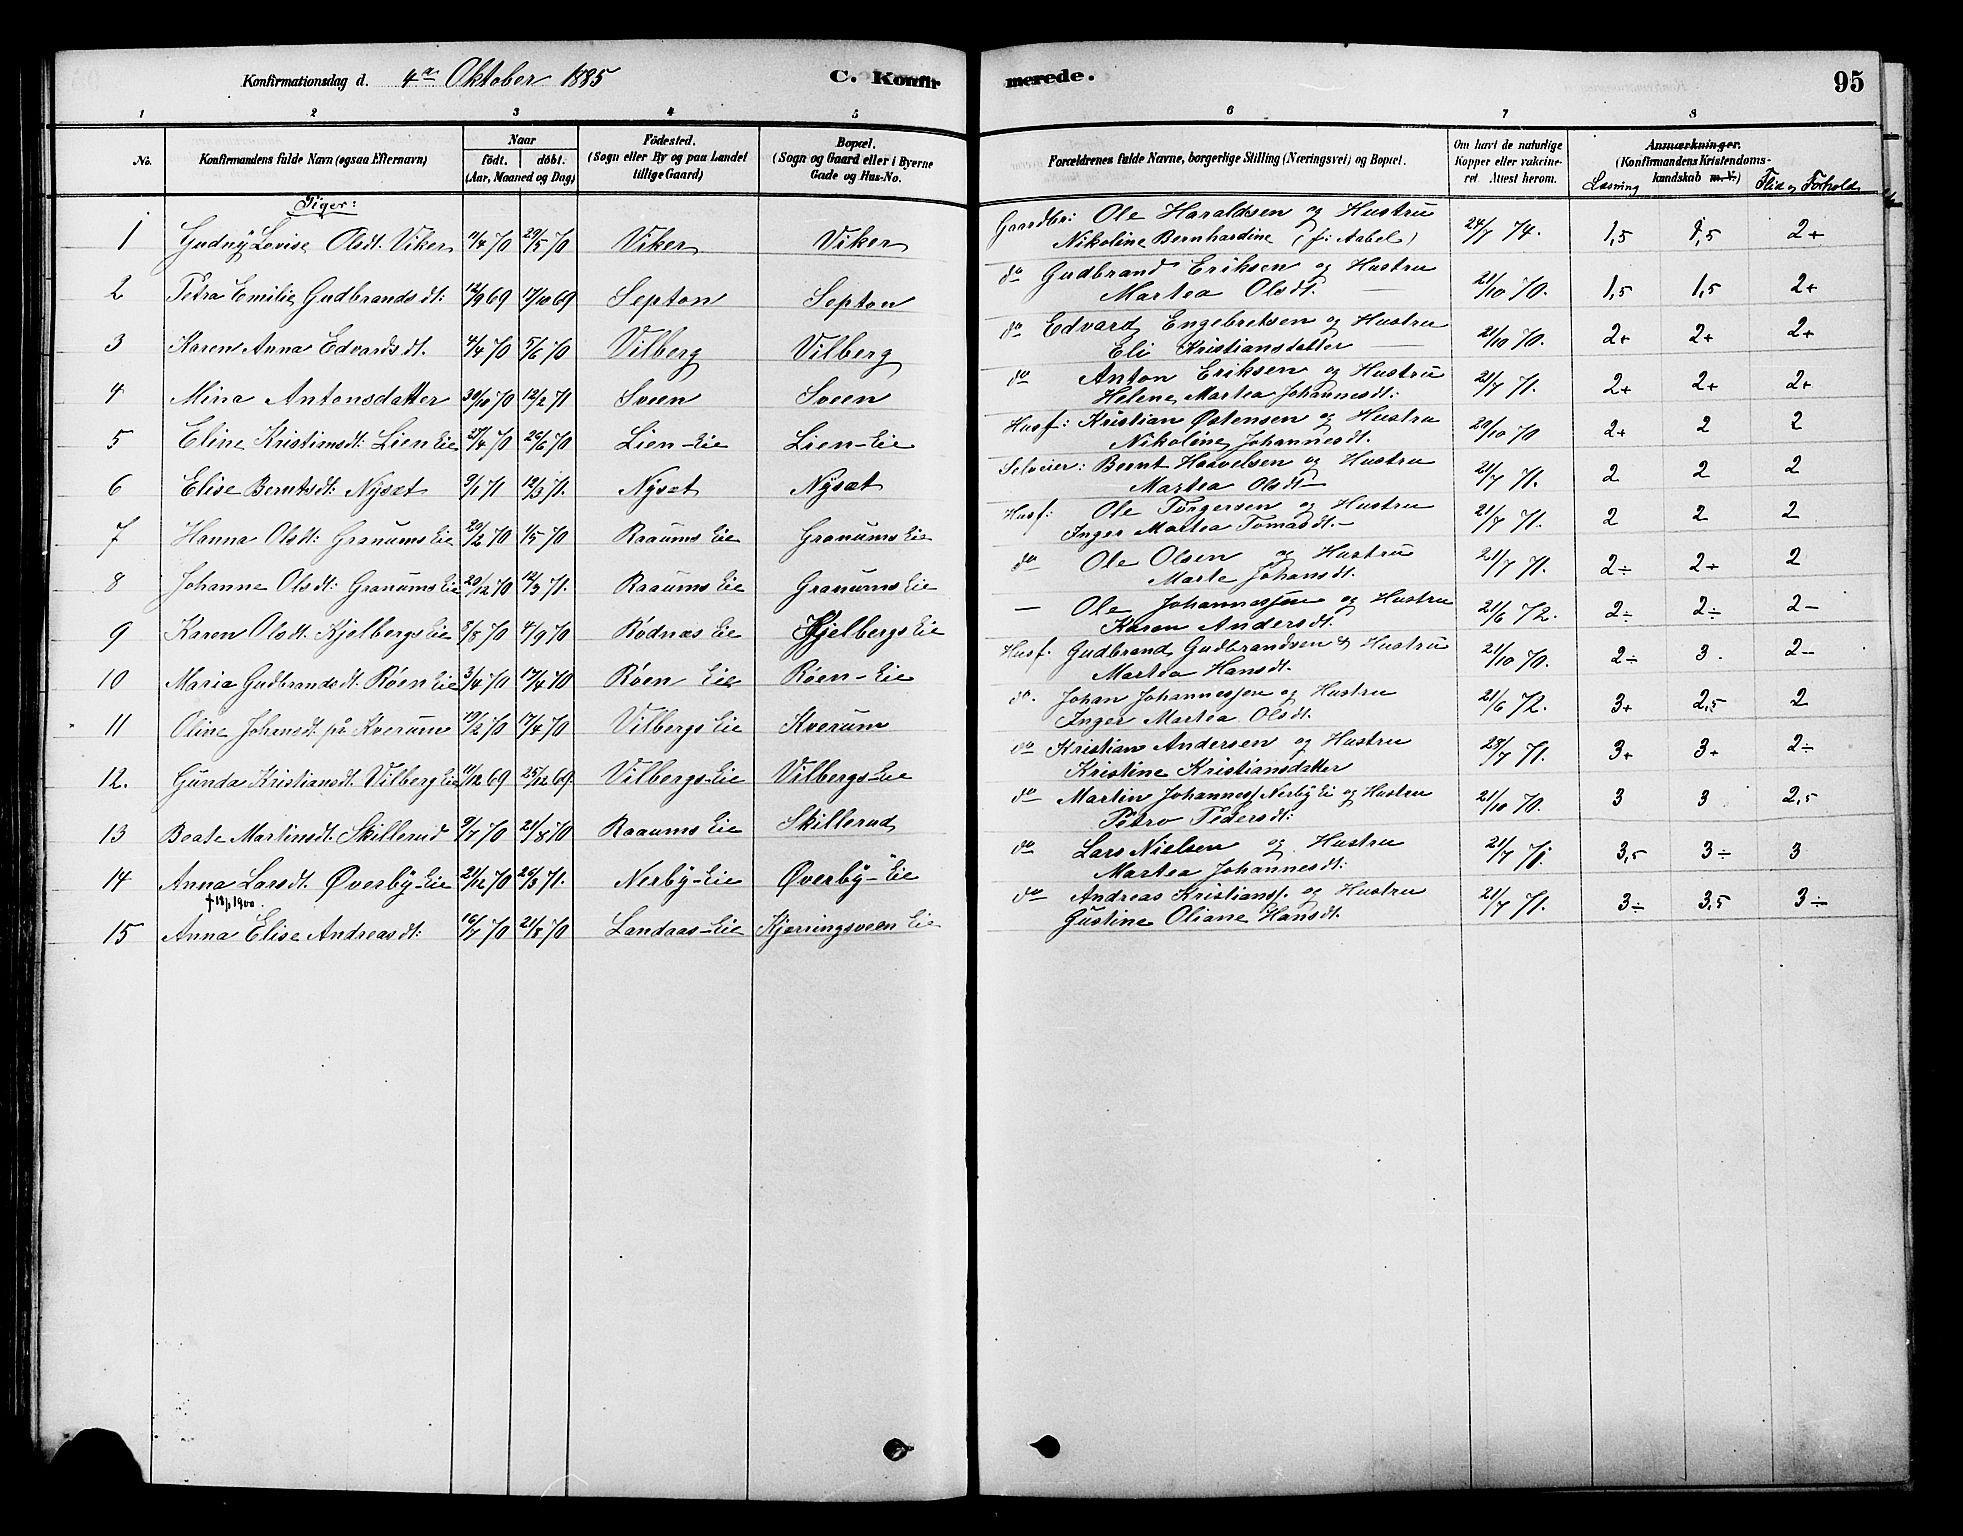 Konfirmationsdag d. 4de Oktober 1885 C. Konfirmerede. 95
1 2 3 4 5 6 7 8
No. Konfirmandens fulde Navn (ogsaa Efternavn) Naar födt. döbt. (Aar, Maaned og Dag) Födested. (Sogn eller By og paa Landet tillige Gaard) Bopæl. (Sogn og Gaard eller i Byerne Gade og Hus-No. Forældrenes fulde Navne, borgerlige Stilling (Næringsvei) og Bopæl. Om havt de naturlige Kopper eller vakcineret Attest herom. Anmærkninger. (Konfirmandens Kristendomskundskab m. V.) Læsning Flid og Forhold
Piger:
1 Gudny Lovise Olsdt. Viker 11/4 70 29/5 70 Viker Viker Gaardbr: Ole Haraldsen og Hustru
Nikoline Bernhardine (f: Aabel) 24/7 74. 1,5 1,5 2+
2 Petra Emilie Gudbrandsdt: 12/9 69 17/10 69 Septon Septon do Gudbrand Eriksen og Hustru
Martea Olsdt. 21/10 70. 1,5 1,5 2+
3 Karen Anna Edvardsdt. 4/4 70 5/6 70 Vilberg Vilberg do Edvard Engebretsen og Hustru
Eli Kristiansdatter 21/10 70. 2+ 2+ 2+
4 Mina Antonsdatter 30/10 70 12/2 71 Sveen Sveen do Anton Eriksen og Hustru
Helene Martea Johannesdt: 21/7 71. 2+ 2+ 2+
5 Eline Kristiansdt: Lien Eie 27/4 70 26/6 70 Lien-Eie Lien-Eie Husf: Kristian Østensen og Hustru
Nikoline Johannesdt. 20/10 70 2+ 2 2
6 Elise Berntsdt: Nysæt 9/1 71 12/3 71. Nysæt Nysæt Selveier: Bernt Haavelsen og Hustru
Martea Olsdt 21/7 71. 2 2 2
7 Hanna Olsdt: Granums Eie 20/2 70 1/5 70 Raaums Eie Granums Eie Husf: Ole Torgersen og Hustru
Inger Martea Tomasdt. 21/7 71. 2 2 2
8 Johanne Olsdt: Granums Eie 20/12 70 12/3 71. Raaums Eie Granums Eie do Ole Olsen og Hustru
Marte Johansdt. 21/7 71. 2÷ 2+ 2
9 Karen Olsdt. Kjelbergs Eie 8/8 70 4/9 70 Rødnæs Eie Kjelbergs Eie — Ole Johannessen og Hustru
Karen Andersdt. 21/6 72. 2÷ 2÷ 2—
10 Maria Gudbrandsdt. Røen Eie 3/4 70 17/4 70 Røen Eie Røen-Eie Husf. Gudbrand Gudbrandsen & Hustru
Martea Hansdt. 21/10 70. 2÷ 3. 2—
11 Oline Johansdt på Kverum 19/2 70 17/4 70 Vilbergs Eie Kverum do. Johan Johannessen og Hustru
Inger Martea Olsdt. 21/6 72. 3+ 2,5 2
12. Gunda Kristiansdt. Vilberg Eie 11/12 69 25/12 69. Vilbergs-Eie Vilbergs-Eie do Kristian Andersen og Hustru
Kristine Kristiansdatter 28/7 71. 3+ 3+ 2÷
13 Beate Martinsdt. Skillerud 9/7 70 21/8 70 Raaums Eie Skillerud do Martin Johanness. Nerby Ei og Hustru
Petro Pedersdt: 21/10 70. 3 3 2,5
14 Anna Larsdt. Øverby-Eie 21/12 70 26/3 71. Nerby-Eie Øverby-Eie do Lars Nielsen og Hustru
† 18/1 1900. Martea Johannesdt: 21/7 71. 3,5 3÷ 3
15 Anna Elise Andreasdt: 16/7 70 21/8 70 Landaas-Eie Kjerringsveen Eie do Andreas Kristians. og Hustru
Gustine Oliane Hansdt. 21/7 71. 3÷ 3,5 3÷